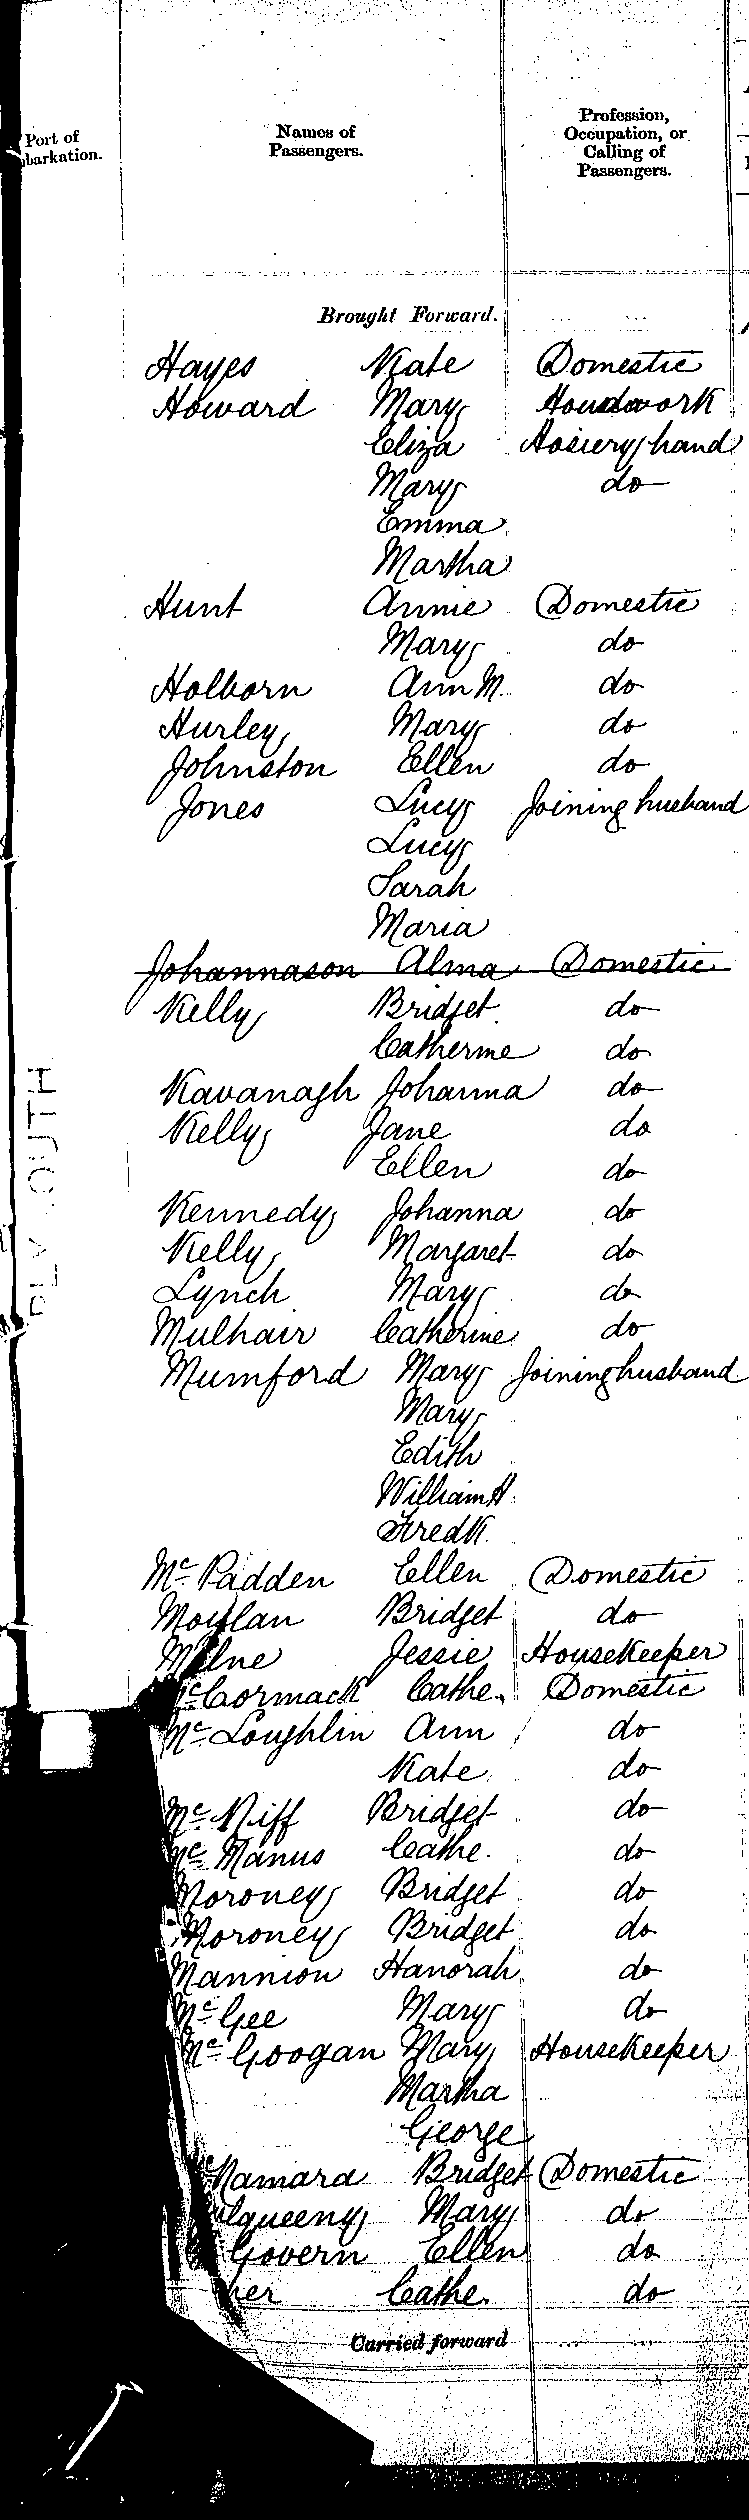 Port of
barkation.
Names of
Passengers.
Profession,
Occupation, or
Calling of
Passengers.
Brought Forward.
Hayes Kate Domestic
Howard Mary Housework
Eliza Hosiery hand
Mary do
Emma
Martha
Hunt Annie Domestic
Mary do
Holborn Ann M. do
Hurley Mary do
Johnston Ellen do
Jones Lucy Joining husband
Lucy
Sarah
Maria
Johannason Alma Domestic
Kelly Bridget do
Catherine do
Kavanagh Johanna do
Kelly Jane do
Ellen do
Kennedy Johanna do
Kelly Margaret do
Lynch Mary do
Mulhair Catherine do
Mumford Mary Joining husband
Mary
Edith
William H.
Fredk.
Mc Padden Ellen Domestic
Moylan Bridget do
Milne Jessie Housekeeper
McCormack Cathe. Domestic
Mc Loughlin Ann do
Kate do
Mc Niff Bridget do
Mc Manus Cathe. do
Moroney Bridget do
Moroney Bridget do
Mannion Hanorah do
Mc Gee Mary do
Mc Googan Mary Housekeeper
Martha
George
Namara Bridget Domestic
lqueeny Mary do
Govern Ellen do
her Cathe. do
Carried forward